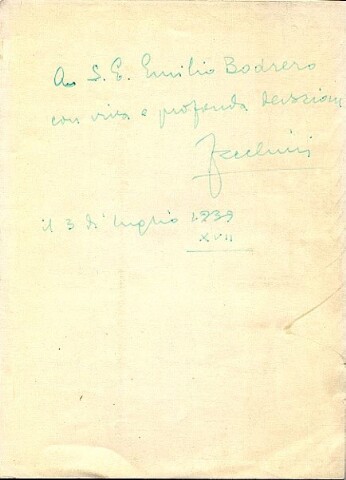 A S. E. Emilio Bodrero
con viva e profonda devozione
il 3 di luglio 1939
XVII